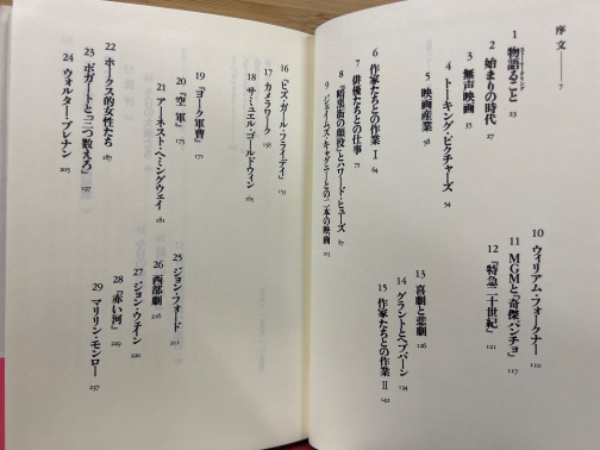 序文——7
1 物語ること 23
2 始まりの時代 27
3 無声映画 35
4 トーキング・ピクチャーズ 54
5 映画産業
6 作家たちとの作業 I 64
7 俳優たちとの仕事 75
8 『暗黒街の顔役』とハワード・ヒューズ 87
9 ジェイムズ・キャグニーとの二本の映画 103
10 ウィリアム・フォークナー 110
11 MGMと『奇傑パンチョ』 117
12 『特急二十世紀』 121
13 喜劇と悲劇 126
14 グラントとヘプバーン 134
15 作家たちとの作業 II 142
16 『ヒズ・ガール・フライデイ』 153
17 カメラワーク
18 サミュエル・ゴールドウィン 165
19 『ヨーク軍曹』 171
20 『空軍』 175
21 アーネスト・ヘミングウェイ 181
22 ホークス的女性たち 187
23 ボガートと『三つ数えろ』 197
24 ウォルター・ブレナン 205
25 ジョン・フォード 211
26 西部劇 216
27 ジョン・ウェイン 220
28 『赤い河』 229
29 マリリン・モンロー 237